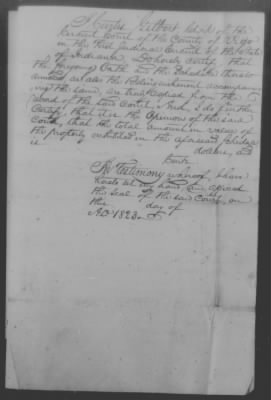 I Curtis Gilbert Clerk of the
Circuit Court of the County of Vigo
in the First Judicial Circuit of the State
of Indiana Do hereby certify that
the foregoing Oath and the Schedule thereto
annexed as also the
the same, are truly copied from the
record of the said Court, And I do further
Certify, that it is the Opinion of the said
Court, that the total amount in value of
the property exhibited in the aforesaid schedule
is dollars, and
Cents
In Testimony whereof I have
hereto set my hand and affixed
the seal of the said Court, on
this day of
AD. 1823